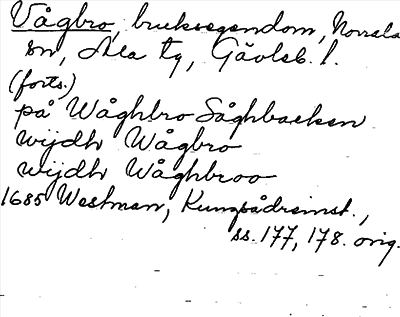 Vågbro, bruksegendom, Norrala
sn, Ala tg, Gävleb. l.
(forts.)
på Wåghbro Såghbacken
wijdh Wågbro
wijdh Wåghbroo
1685 Westman, Kungsådreinst.,
ss. 177, 178. orig.